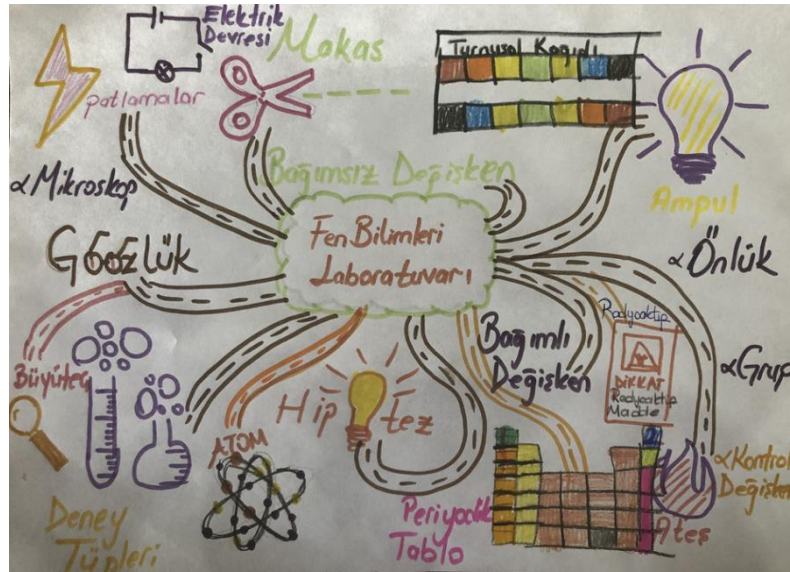 Elektrik
Devresi
Makas
Turnusol Kağıdı
patlamalar
αMikroskop
Bağımsız Değişken
Ampul
Fen Bilimleri
Laboratuvarı
Gözlük
αÖnlük
Radyoaktip
Bağımlı
Değişken
DİKKAT
Radyoaktip
Madde
αGrup
Büyüteç
Hip tez
ATOM
αKontrol
Değişken
Deney
Tüpleri
Periyodik
Tablo
Ateş